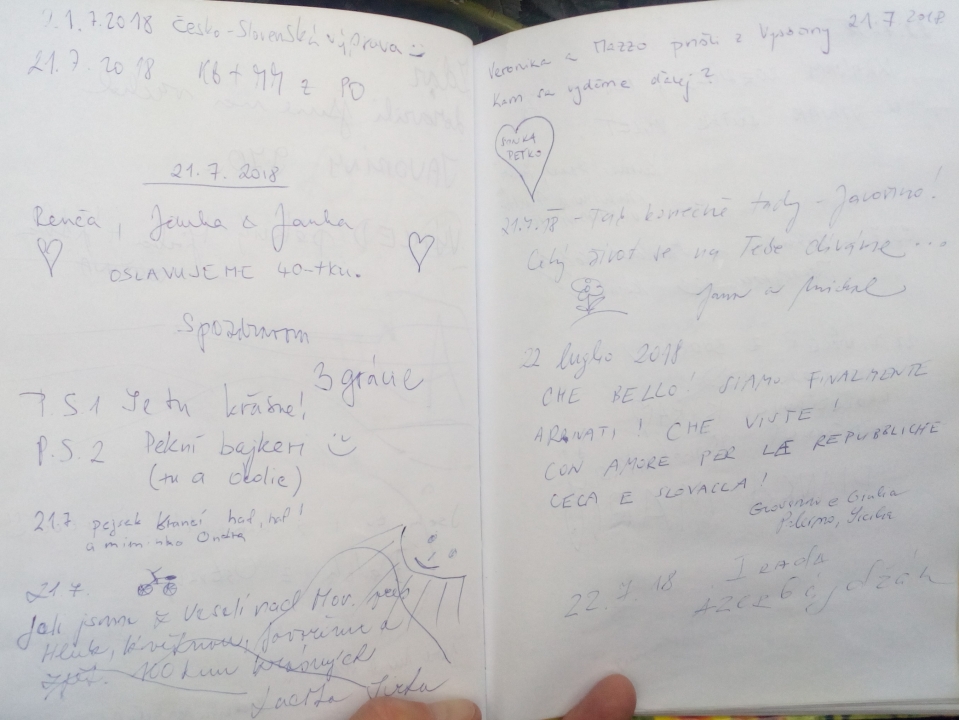 21.7.2018 Česko-Slovenská výprava
21.7.2018 KB + MM z PO
21.7.2018
Renča, Janka a Janka
OSLAVUJEME 40-tku.
S pozdravom
3 grácie
P.S.1 Je tu krásne!
P.S.2 Pekní bajkeri
(tu a okolie)
21.7 pejsek haf, haf!
a miminko Ondra
21.7.
Jeli jsme z Veselí nad Mor. přes
Hluk, Javorinu a
zpět. 100 km krásných
Veronika a MAZZO prišli z Vysočiny 21.7.2018
Kam sa vydáme ďalej?
PEŤKO
21.7.18 - Tak konečně tady - Javorino!
Celý život se na Tebe díváme ...
Jana a Michal
22 luglio 2018
CHE BELLO! SIAMO FINALMENTE
ARRIVATI! CHE VISTE!
CON AMORE PER LE REPUBBLICHE
CECA E SLOVACCA!
Giovanni e Giulia
Palermo, Sicilia
22.7.18